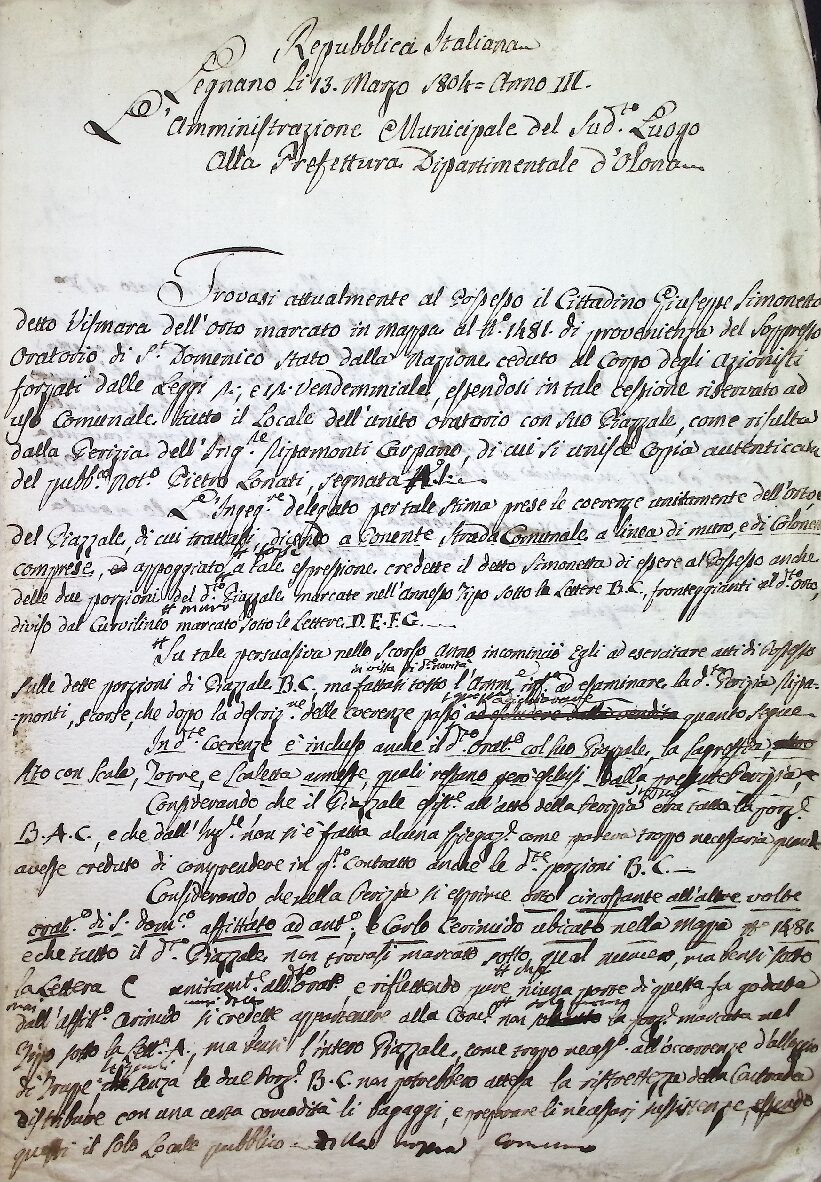 Repubblica Italiana
Legnano li 13. Marzo 1804= Anno III.
L'Amministrazione Municipale del Sud.to Luogo
Alla Prefettura Dipartimentale d'Olona
Trovasi attualmente al Possesso il Cittadino Giuseppe Simonetta
detto Vismara dell'Orto marcato in mappa al N.o 1481. di provenienza del Soppresso
Oratorio di S.t Domenico stato dalla Nazione ceduto al Corpo degli Azionisti
forzati dalle Leggi e Vendemmiale, essendosi in tale cessione riservato ad
uso Comunale tutto il Locale dell'unito oratorio con suo Piazzale, come risulta
dalla Perizia dell'Ing.re Ripamonti Carpano, di cui si unisce Copia autenticata
del pubb.co Not.o Pietro Lonati, segnata A
L'Ingeg.re delegato per tale stima prese le coerenze unitamente dell'orto e
del Piazzale, di cui trattasi, dicendo a Ponente Strada Comunale a linea di muro, e di Colonne
comprese, ed appoggiato forse a tale espressione credette il detto Simonetta di essere al Possesso anche
delle due porzioni del d.to Piazzale marcate nell'annesso Tipo sotto le Lettere B.C. fronteggianti al d.to Orto,
diviso dal Curvilineo muro marcato sotto le Lettere D.E.F.G.
Su tale persuasiva nello scorso Anno incominciò Egli ad esercitare atti di Possesso
in vista di
sulle dette porzioni di Piazzale B.C. ma fattasi tosto l'Amm.e ad esaminare la d.ta Perizia Ripa-
-monti, scorse, che dopo la descriz.ne delle coerenze passò quanto segue
In d.te Coerenze è incluso anche il d.to Orat.o col suo Piazzale, la Sagrestia,
Atro con Scala, Torre, e Scaletta annesse, quali restano però esclusi dalla presente Perizia,
Considerando che il Piazzale esist.e all'atto della Perizia era tutta la porz.e
B.A.C., e che dall'Ing.re non si è fatta alcuna spiegaz.e come pareva troppo necessaria quando
avesse creduto di comprendere in q.to contratto anche le d.te porzioni B.C.
Considerando che nella Perizia si esprime orto circostante all'altre volte
orat.o di S. Dom.co affittato ad ant.o, e Carlo Cerinuido ubicato nella Mappa N.o 1481.
e che tutto il d.to Piazzale non trovasi marcato sotto quel numero, ma bensì sotto
la Lettera C unitam.te all'd.to Orat.o, e riflettendo pure che niuna parte di questa fu goduta
mai dall'Affitt.o Cerinuido si credette appartenere alla Com.e non la porz.e marcata nel
Tipo sotto la Lett.a A, ma bensì l'intero Piazzale, come tropo necess.o all'occorrenze d'alloggio
di Truppe, senza le due Porz.i B.C. non potrebbero attesa la ristrettezza della Contrada
distribure con una certa comodità li bagaggi, e preparare li necessari sussistenze, essendo
questi il solo Locale pubblico